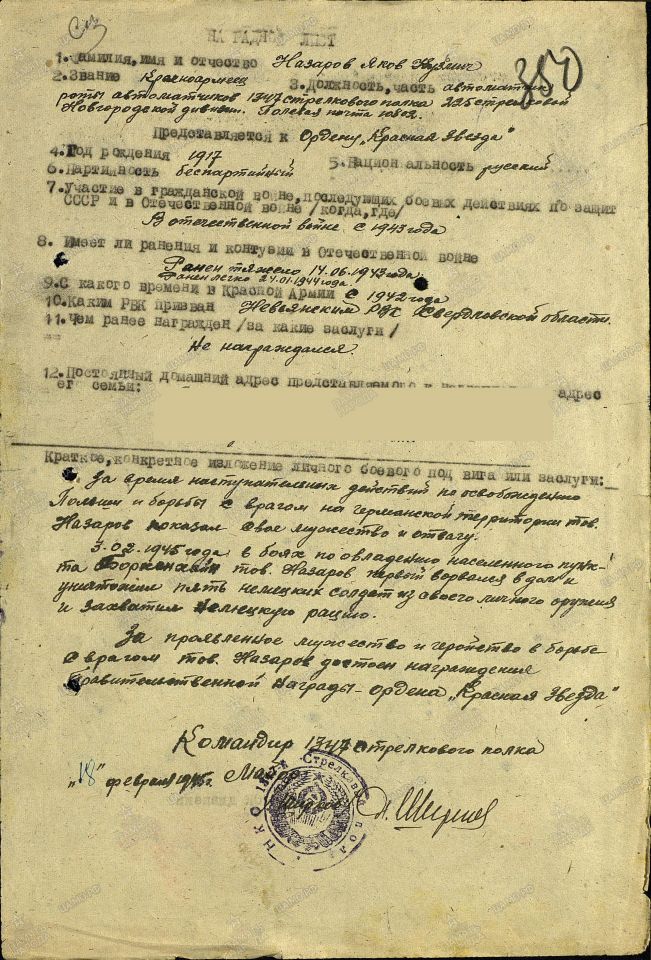 НАГРАДНОЙ ЛИСТ
350
1. Фамилия, имя и отчество Назаров Яков
2. Звание Красноармеец 3. Должность, часть автоматчик
роты автоматчиков 1347 стрелкового полка 225 стрелковой
Новгородской дивизии. Полевая почта
Представляется к Ордену „Красная Звезда"
4. Год рождения 1917 5. Национальность русский
6. Партийность беспартийный
7. Участие в гражданской войне, последующих боевых действиях по защит
СССР и в Отечественной войне /когда, где/
В отечественной войне с 1943 года
8. Имеет ли ранения и контузии в Отечественной войне
Ранен тяжело 14.06.1943 года.
Ранен легко 24.01.1944 года.
9. С какого времени в Красной Армии с 1942 года
10. Каким РВК призван Невьянским РВК Свердловской области.
11. Чем ранее награжден /за какие заслуги/
Не награждался.
12. Постоянный домашний адрес представляемого и адрес
ег семьи:
Краткое, конкретное изложение личного боевого подвига или заслуги:
За время наступательных действий по освобождению
Польши и борьбы с врагом на германской территории тов.
Назаров показал свое мужество и отвагу.
3.02.1945 года в боях по овладению населенного пунк-
та тов. Назаров первой ворвался в дом и
уничтожил пять немецких солдат из своего личного оружия
и захватил немецкую рацию.
За проявленное мужество и геройство в борьбе
с врагом тов. Назаров достоен награждения
Правительственной награды - ордена „Красная Звезда"
Командир 1347 стрелкового полка
„18" февраля 1945 г. Майор
НКО Стрелковый полк